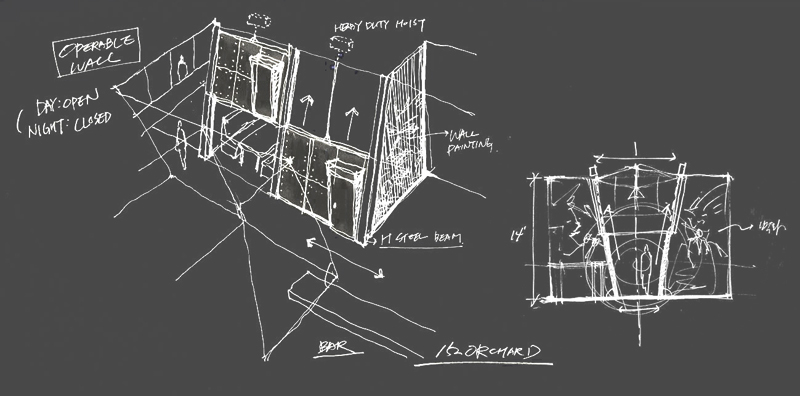 OPERABLE
WALL
DAY: OPEN
NIGHT: CLOSED
HEAVY DUTY HOIST
WALL
PAINTING.
H STEEL BEAM
BAR
152 ORCHARD
14'